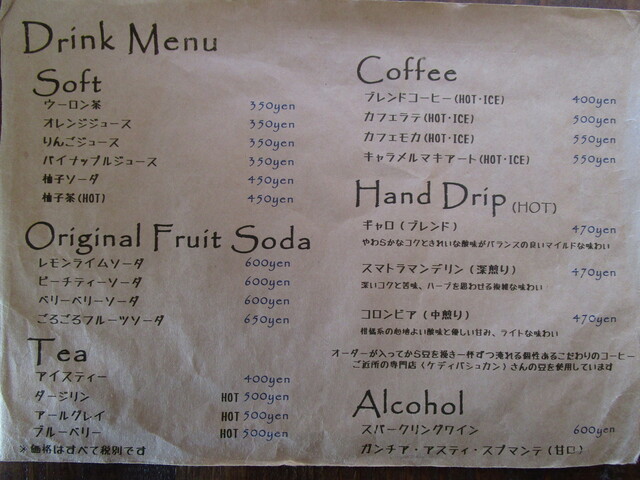 Drink Menu
Soft
ウーロン茶 350yen
オレンジジュース 350yen
りんごジュース 350yen
パイナップルジュース 350yen
柚子ソーダ 450yen
柚子茶(HOT) 450yen
Original Fruit Soda
レモンライムソーダ 600yen
ピーチティーソーダ 600yen
ベリーベリーソーダ 600yen
ごろごろフルーツソーダ 650yen
Tea
アイスティー 400yen
ダージリン HOT 500yen
アールグレイ HOT 500yen
ブルーベリー HOT 500yen
※価格はすべて税別です
Coffee
ブレンドコーヒー(HOT・ICE) 400yen
カフェラテ(HOT・ICE) 500yen
カフェモカ(HOT・ICE) 550yen
キャラメルマキアート(HOT・ICE) 550yen
Hand Drip (HOT)
ギャロ(ブレンド) 470yen
やわらかなコクときれいな酸味がバランスの良いマイルドな味わい
スマトラマンデリン(深煎り) 470yen
深いコクと苦味、ハーブを思わせる複雑な味わい
コロンビア(中煎り) 470yen
柑橘系の心地よい酸味と優しい甘み、ライトな味わい
オーダーが入ってから豆を挽き一杯ずつ淹れる個性あるこだわりのコーヒー
ご近所の専門店(ケディバシュカン)さんの豆を使用しています
Alcohol
スパークリングワイン 600yen
ガンチア・アスティ・スプマンテ(甘口)